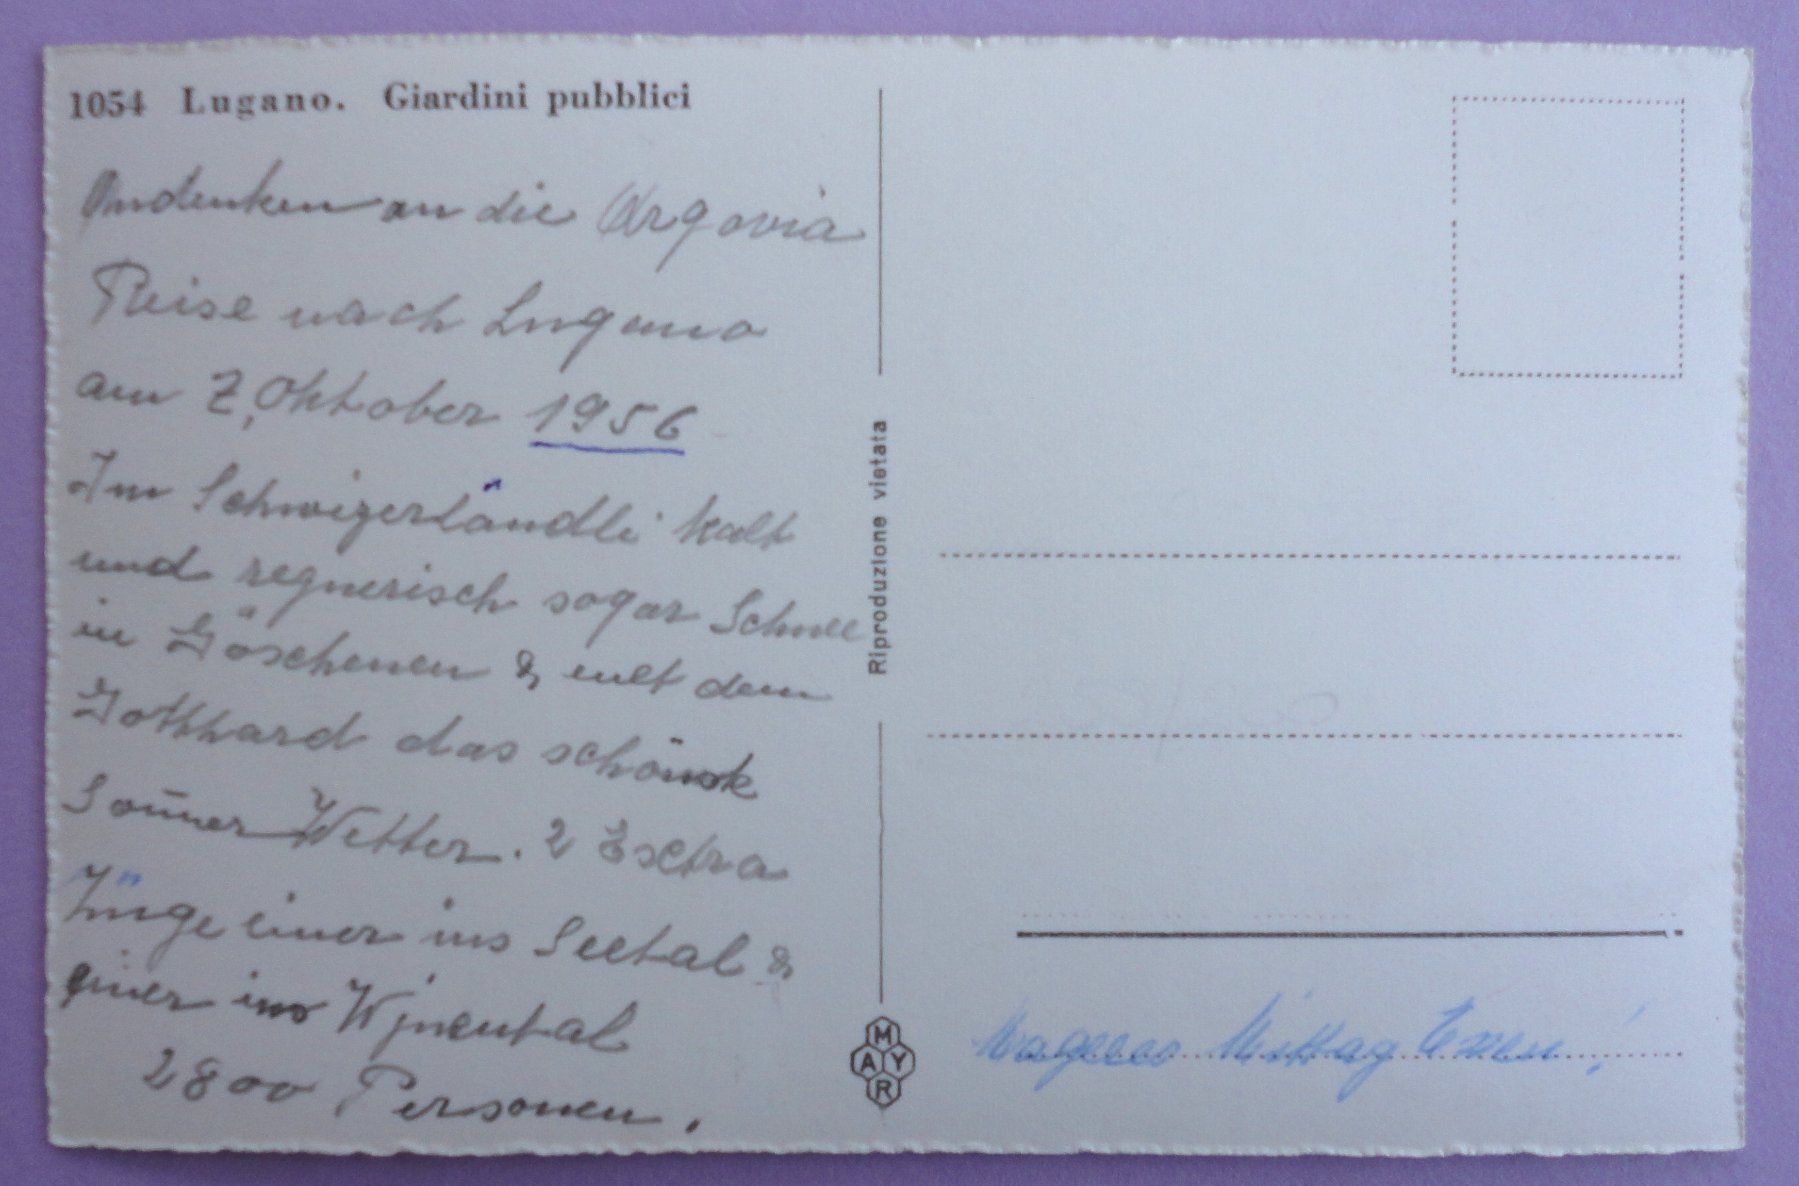 1054 Lugano. Giardini pubblici
Andenken an die Argovia
Reise nach Lugano
am 7. Oktober 1956
Im Schwizerländli kalt
und regnerisch sogar Schnee
in Göschenen & enet dem
Gotthard das schönste
Sonner Wetter. 2 Extra
Züge einer ins Seetal &
einer ins Wynental
2800 Personen.
Riproduzione vietata
MAYR
Mageres Mittag Essen!